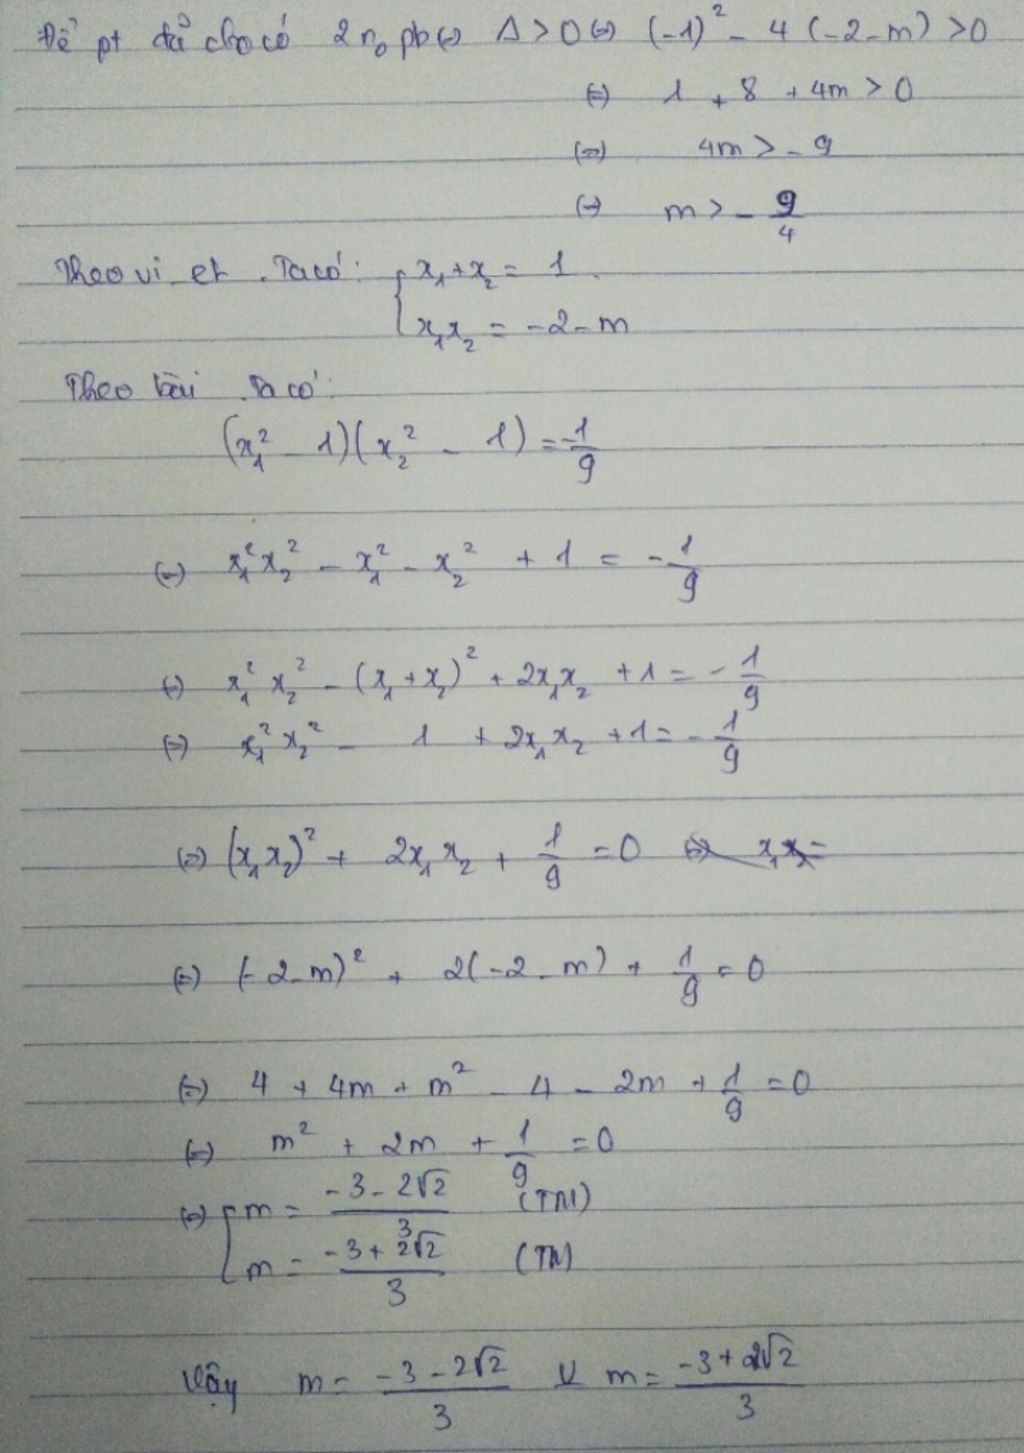 Để pt đã cho có 2 no pb (=) Δ > 0 (=) (-1)² - 4 (-2 - m) > 0
(=) 1 + 8 + 4m > 0
(=) 4m > - 9
(=) m > - 9/4
Theo vi et . Ta có : { x₁ + x₂ = 1
x₁x₂ = -2 - m
Theo bài Ta có :
(x₁² - 1)(x₂² - 1) = -1/9
(=) x₁² x₂² - x₁² - x₂² + 1 = - 1/9
(=) x₁² x₂² - (x₁ + x₂)² + 2x₁x₂ + 1 = - 1/9
(=) x₁² x₂² - 1 + 2x₁x₂ + 1 = - 1/9
(=) (x₁x₂)² + 2x₁x₂ + 1/9 = 0 (=) x₁x₂ =
(=) (-2 - m)² + 2(-2 - m) + 1/9 = 0
(=) 4 + 4m + m² - 4 - 2m + 1/9 = 0
(=) m² + 2m + 1/9 = 0
(=) [ m = (-3 - 2√2)/3 (TM)
m = (-3 + 2√2)/3 (TM)
Vậy m = (-3 - 2√2)/3 V m = (-3 + 2√2)/3